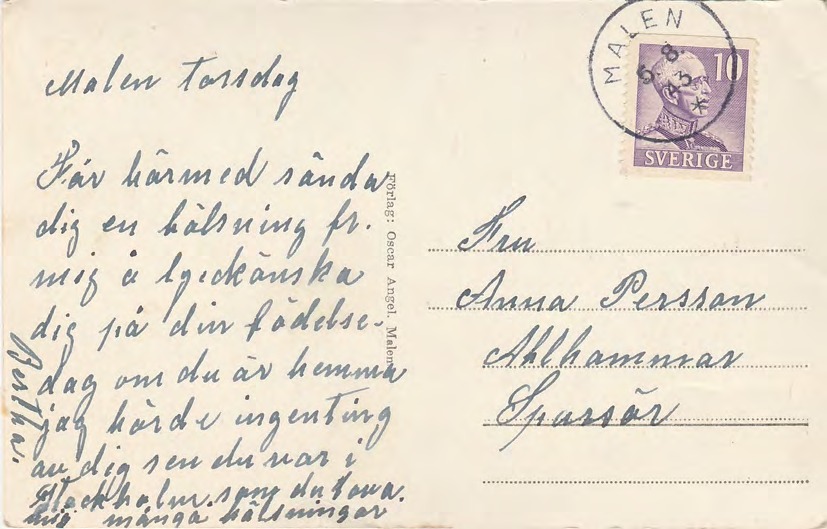 Malen torsdag
Får härmed sända
dig en hälsning fr.
mig å lyckönska
dig på din födelse-
dag om du är hemma
jag hörde ingenting
av dig sen du var i
Stockholm som du lova.
mig många hälsningar
Bertha.
Förlag: Oscar Angel. Malen
MALEN
6. 8.
43
*
10
SVERIGE
Fru
Anna Persson
Ahlhammar
Sparsör